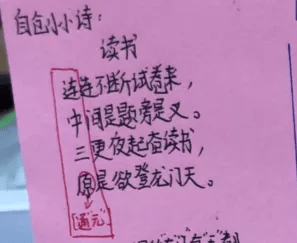 自包小小诗：
读书
连连不断试卷来，
中间是题旁是义。
三更夜起奋读书，
原是欲登龙门天。
通元